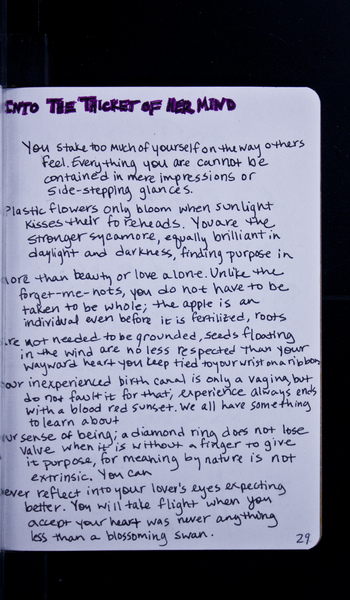 INTO THE THICKET OF HER MIND
You stake too much of yourself on the way others
feel. Everything you are cannot be
contained in mere impressions or
side-stepping glances.
Plastic flowers only bloom when sunlight
kisses their foreheads. You are the
stronger sycamore, equally brilliant in
daylight and darkness, finding purpose in
more than beauty or love alone. Unlike the
forget-me-nots, you do not have to be
taken to be whole; the apple is an
individual even before it is fertilized, roots
are not needed to be grounded, seeds floating
in the wind are no less respected than your
wayward heart you keep tied to your wrist on a ribbon
Your inexperienced birth canal is only a vagina, but
do not fault it for that; experience always ends
with a blood red sunset. We all have something
to learn about
our sense of being; a diamond ring does not lose
valve when it is without a finger to give
it purpose, for meaning by nature is not
extrinsic. You can
never reflect into your lover's eyes expecting
better. You will take flight when you
accept your heart was never anything
less than a blossoming swan.
29